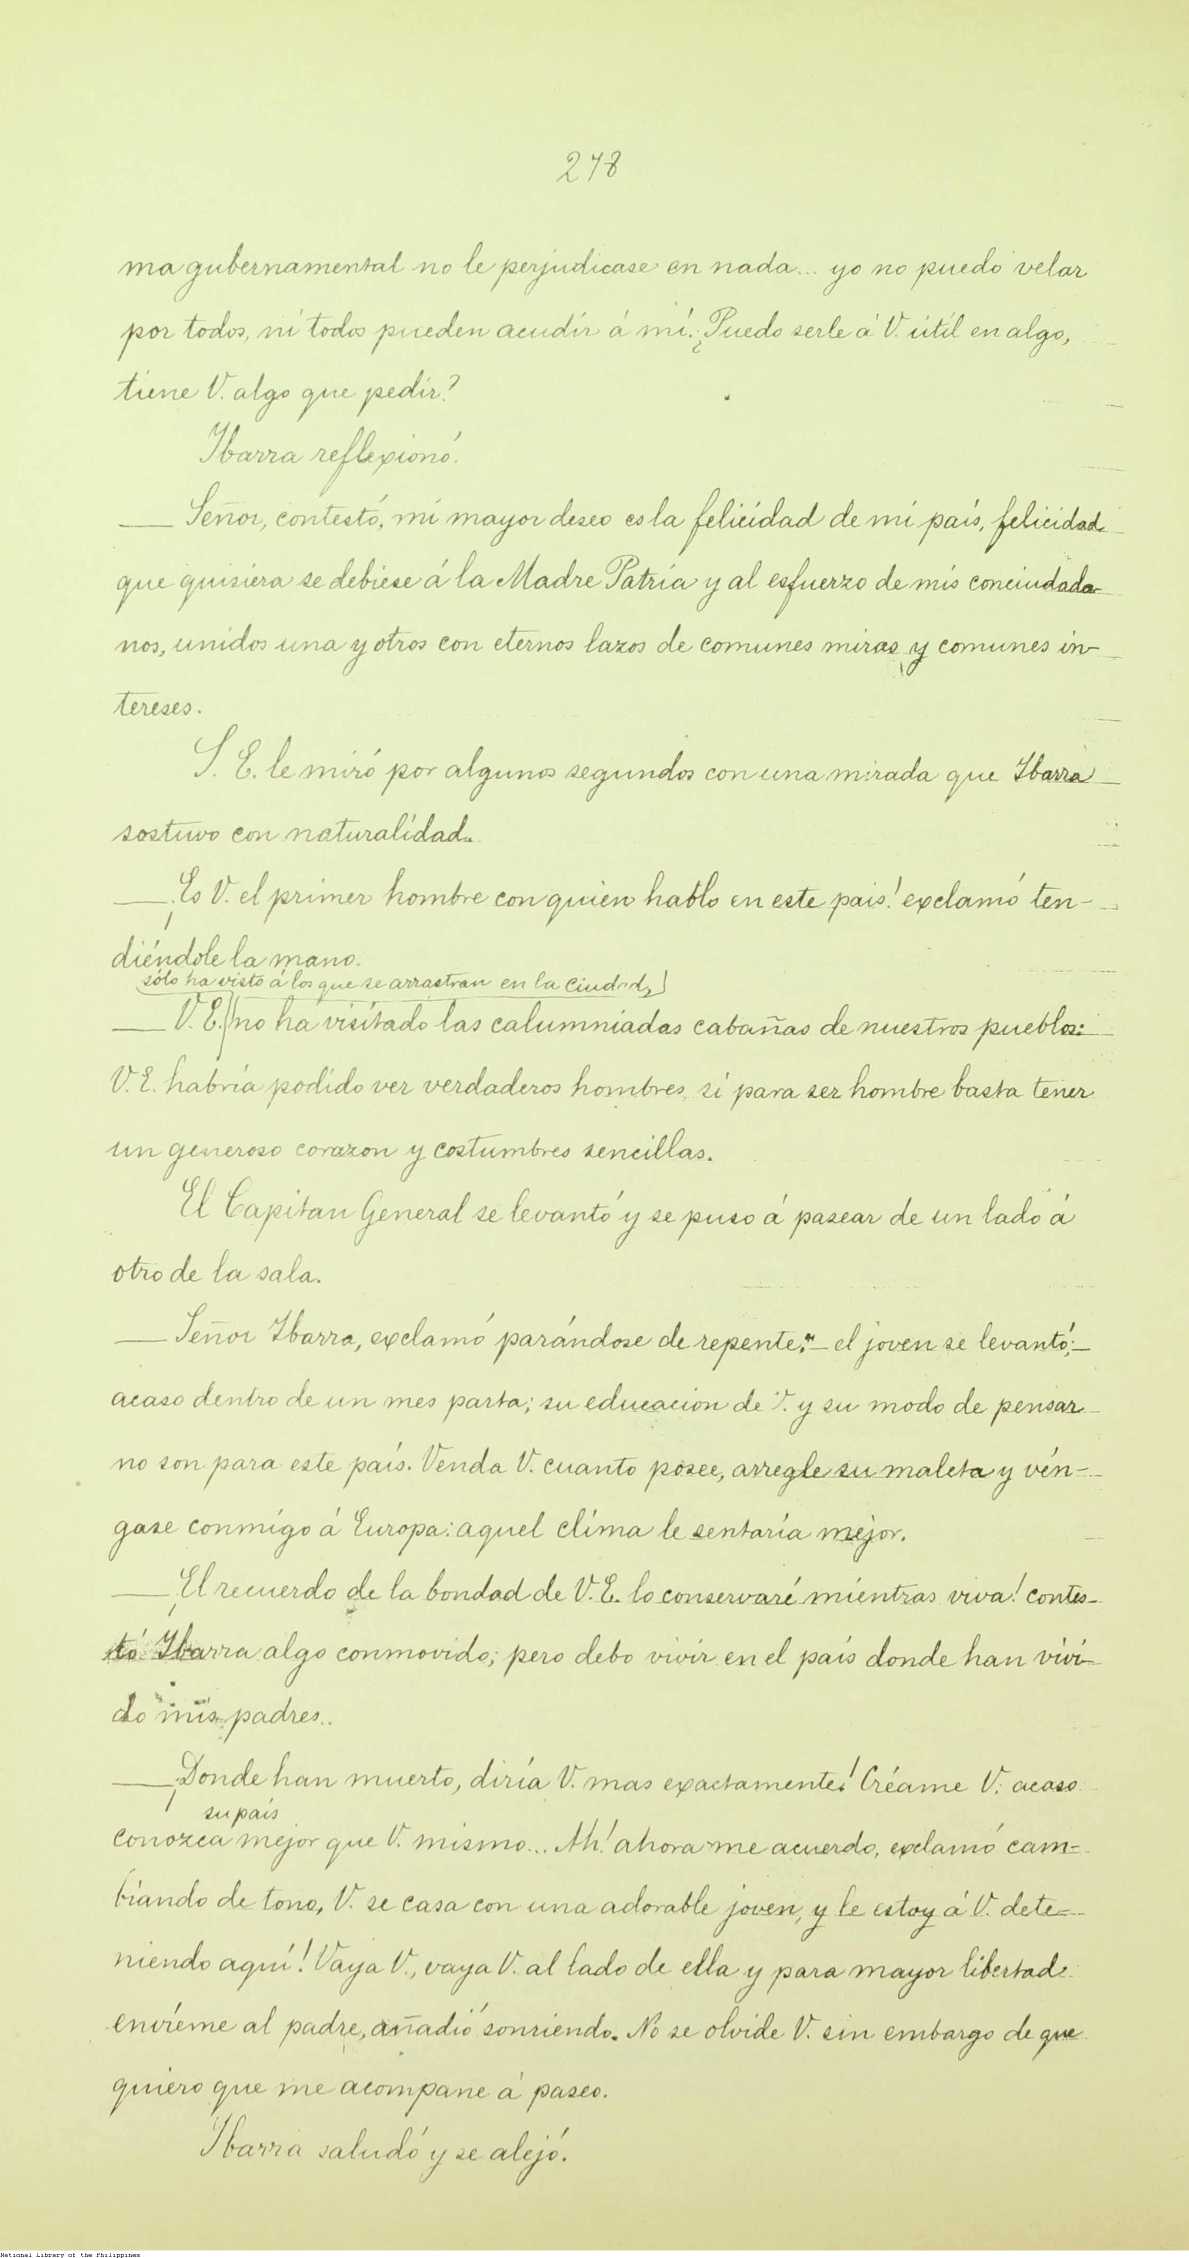 278
ma gubernamental no le perjudicase en nada... yo no puedo velar
por todos, ni todos pueden acudir á mí. ¿Puedo serle á V. útil en algo,
tiene V. algo que pedir?
Ibarra reflexionó.
— Señor, contestó, mi mayor deseo es la felicidad de mi país, felicidad
que quisiera se debiese á la Madre Patria y al esfuerzo de mis conciudada-
nos, unidos una y otros con eternos lazos de comunes miras y comunes in-
tereses.
S. E. le miró por algunos segundos con una mirada que Ibarra
sostuvo con naturalidad.
— ¡Es V. el primer hombre con quien hablo en este pais! exclamó ten-
diéndole la mano.
sólo ha visto á los que se arrastran en la ciudad,
— V. E. no ha visitado las calumniadas cabañas de nuestros pueblos:
V. E. habría podido ver verdaderos hombres, si para ser hombre basta tener
un generoso corazon y costumbres sencillas.
El Capitan General se levantó y se puso á pasear de un lado á
otro de la sala.
— Señor Ibarra, exclamó parándose de repente; — el joven se levantó; —
acaso dentro de un mes parta; su educacion de V. y su modo de pensar
no son para este país. Venda V. cuanto posee, arregle su maleta y vén-
gase conmigo á Europa: aquel clima le sentaría mejor.
— ¡El recuerdo de la bondad de V. E. lo conservaré mientras viva! contes-
tó Ibarra algo conmovido; pero debo vivir en el país donde han vivi-
do mis padres..
— ¡Donde han muerto, diría V. mas exactamente! Créame V. acaso
su país
conozca mejor que V. mismo... Ah! ahora me acuerdo, exclamó cam-
biando de tono, V. se casa con una adorable joven, y le estoy á V. dete-
niendo aquí! Vaya V., vaya V. al lado de ella y para mayor libertad
envíeme al padre, añadió sonriendo. No se olvide V. sin embargo de que
quiero que me acompane á paseo.
Ibarra saludó y se alejó.
National Library of the Philippines